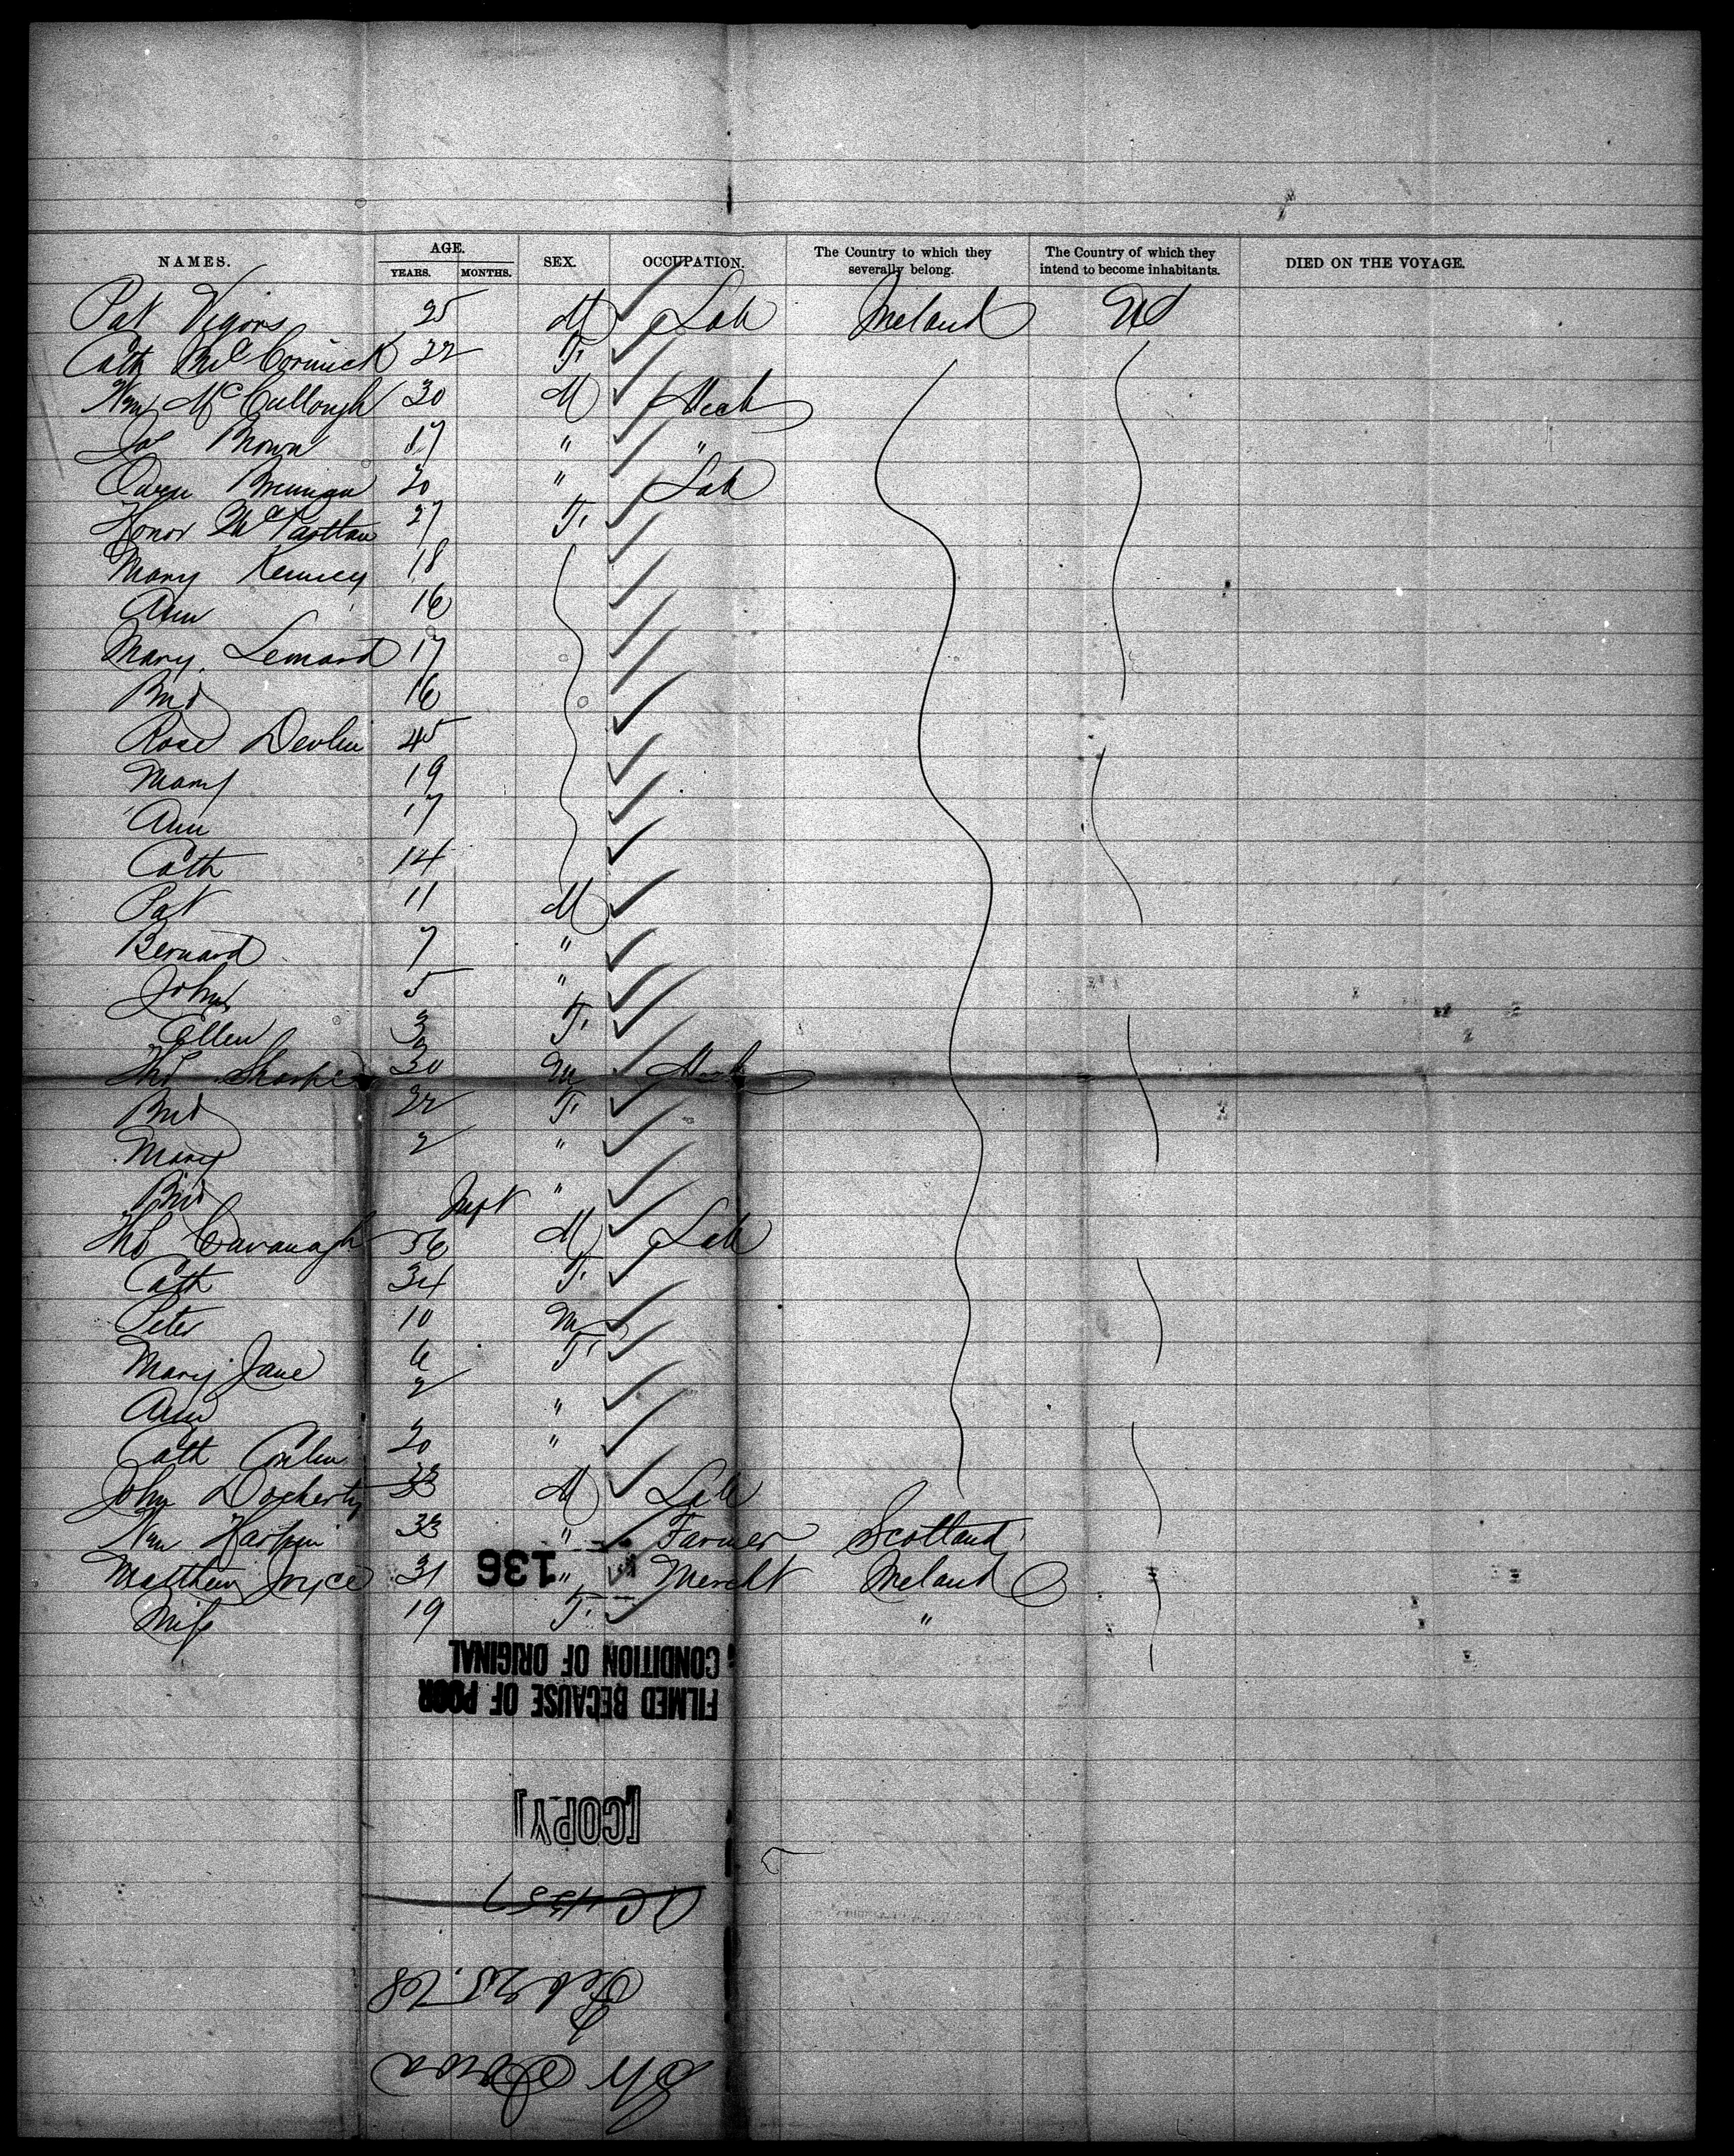 NAMES. AGE. YEARS. MONTHS. SEX. OCCUPATION. The Country to which they severally belong. The Country of which they intend to become inhabitants. DIED ON THE VOYAGE.
Pat Vigors 25 M Lab Ireland US
Cath McCormick 22 F
Wm McCullough 30 M Mech
Jos Brown 17 " "
Owen Brennan 20 " Lab
Honor McPartlan 27 F
Mary Kenney 18
Ann 16
Mary Lenard 17
Brid 16
Rose Devlin 45
Mary 19
Ann 17
Cath 14
Pat 11 M
Bernard 7 "
John 5 "
Ellen 3 F
Thos Sharpe 30 M Mech
Brid 22 F
Mary 2 "
Brid Inft "
Thos Cavanagh 36 M Lab
Cath 34 F
Peter 10 M
Mary Jane 6 F
Ann 2 "
Cath Conlin 20 "
John Docherty 33 M Lab
Wm 33 " Farmer Scotland
Matthew Joyce 31 " Mercht Ireland
19 F "
136
CONDITION OF ORIGINAL
FILMED BECAUSE OF POOR
[COPY]
Feb 25. 68
Iowa